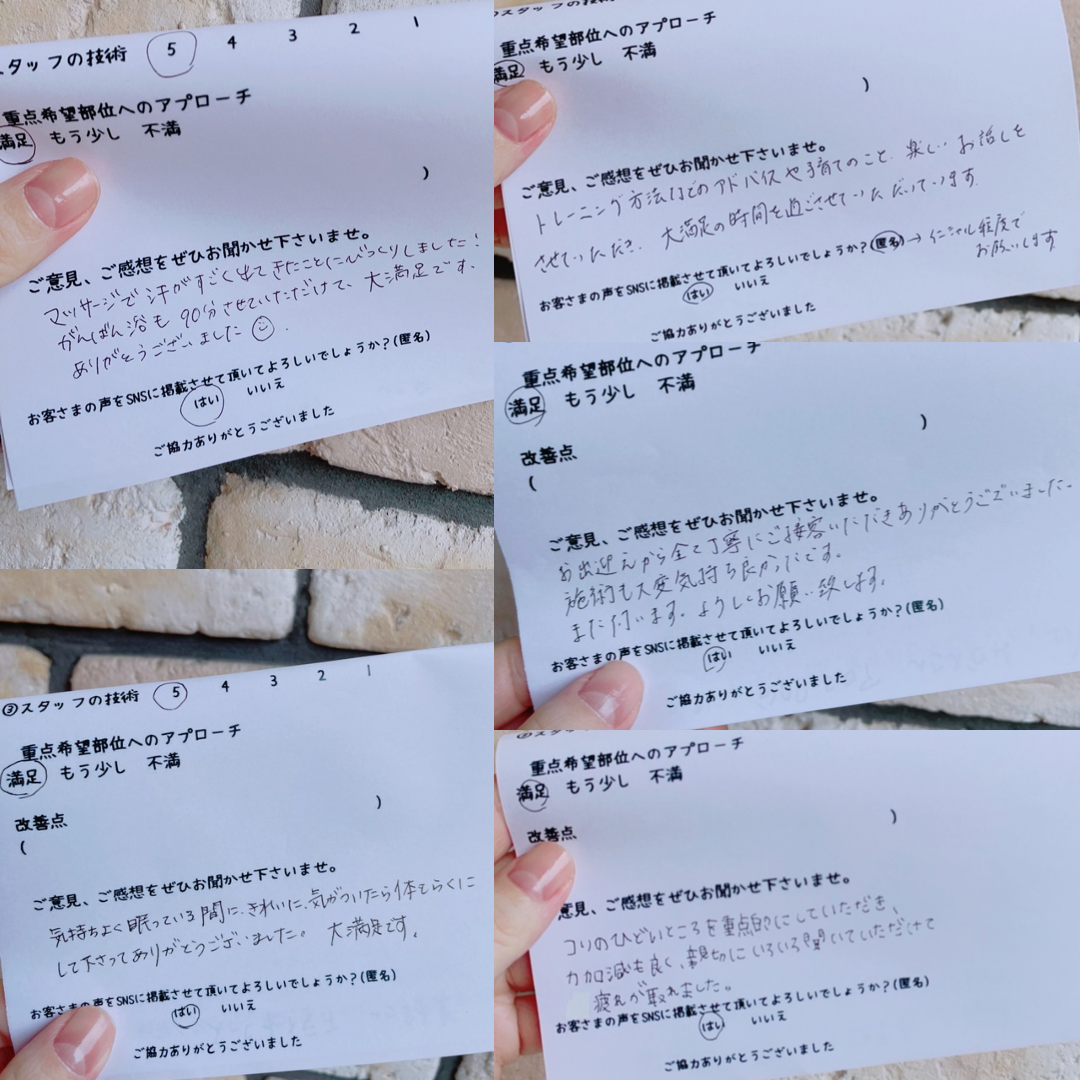 スタッフの技術 5 4 3 2 1
重点希望部位へのアプローチ
満足 もう少し 不満
)
ご意見、ご感想をぜひお聞かせ下さいませ。
マッサージで汗がすごく出てきたことにびっくりしました!
がんばん浴も90分させていただけて、大満足です。
ありがとうございました
お客さまの声をSNSに掲載させて頂いてよろしいでしょうか?(匿名)
はい いいえ
ご協力ありがとうございました
②スタッフの技術 5 4 3 2 1
重点希望部位へのアプローチ
満足 もう少し 不満
改善点
( )
ご意見、ご感想をぜひお聞かせ下さいませ。
気持ちよく眠っている間に、きれいに、気がついたら体もらくに
して下さってありがとうございました。 大満足です。
お客さまの声をSNSに掲載させて頂いてよろしいでしょうか?(匿名)
はい いいえ
ご協力ありがとうございました
重点希望部位へのアプローチ
満足 もう少し 不満
)
ご意見、ご感想をぜひお聞かせ下さいませ。
トレーニング方法などのアドバイスや子育てのこと、楽しいお話しを
させていただき、大満足の時間を過ごさせていただいています。
お客さまの声をSNSに掲載させて頂いてよろしいでしょうか?(匿名)→イニシャル程度で
お願いします
はい いいえ
ご協力ありがとうございました
重点希望部位へのアプローチ
満足 もう少し 不満
改善点
( )
ご意見、ご感想をぜひお聞かせ下さいませ。
お出迎えから全て丁寧にご接客いただきありがとうございました。
施術も大変気持ち良かったです。
また伺います。よろしくお願い致します。
お客さまの声をSNSに掲載させて頂いてよろしいでしょうか?(匿名)
はい いいえ
ご協力ありがとうございました
重点希望部位へのアプローチ
満足 もう少し 不満
改善点
)
意見、ご感想をぜひお聞かせ下さいませ。
コリのひどいところを重点的にしていただき、
力加減も良く、親切にいろいろ聞いていただけて
疲れが取れました。
お客さまの声をSNSに掲載させて頂いてよろしいでしょうか?(匿名)
はい いいえ
ご協力ありがとうございました